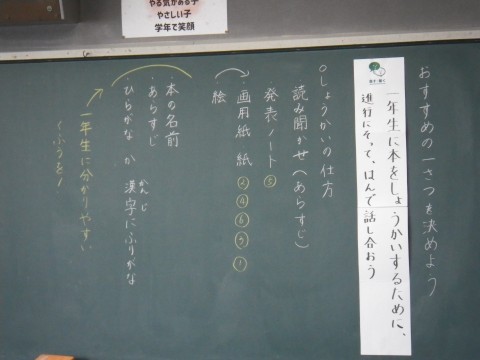 やる気がある子
やさしい子
学年で笑顔
おすすめの一さつを決めよう
一年生に本をしょうかいするために、
進行にそって、はんで話し合おう
○しょうかいの仕方
読み聞かせ(あらすじ)
・発表ノート⑤
・画用紙 紙 ②④⑥③①
絵
・本の名前
・あらすじ
ひらがな か 漢字にふりがな
かんじ
一年生に分かりやすい
くふうを!